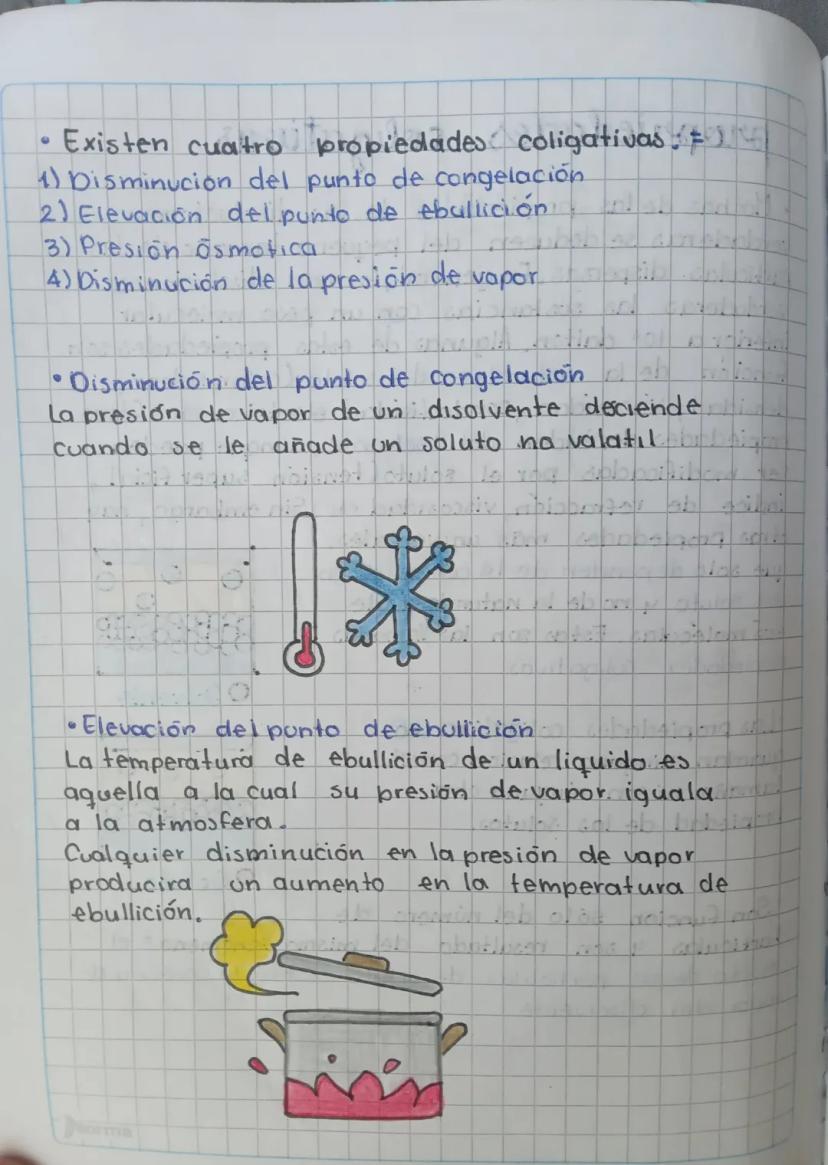 • Existen cuatro propiedades coligativas:
1) Disminución del punto de congelación
2) Elevación del punto de ebullición
3) Presión ósmotica
4) Disminución de la presión de vapor
• Disminución del punto de congelación
La presión de vapor de un disolvente deciende
cuando se le añade un soluto no valatil
• Elevación del punto de ebullición
La temperatura de ebullición de un liquido es
aquella a la cual su presión de vapor iguala
a la atmosfera.
Cualquier disminución en la presión de vapor
producira un aumento en la temperatura de
ebullición.
norma